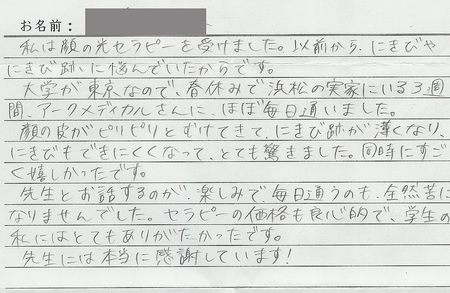 お名前：
私は顔の光セラピーを受けました。以前から、にきびや
にきび跡に悩んでいたからです。
大学が東京なので、春休みで浜松の実家にいる3週
間、アークメディカルさんに、ほぼ毎日通いました。
顔の皮がピリピリとむけてきて、にきび跡が薄くなり、
にきびもできにくくなって、とても驚きました。同時にすご
く嬉しかったです。
先生とお話するのが、楽しみで、毎日通うのも、全然苦に
なりませんでした。セラピーの価格も良心的で、学生の
私にはとてもありがたかったです。
先生には本当に感謝しています！